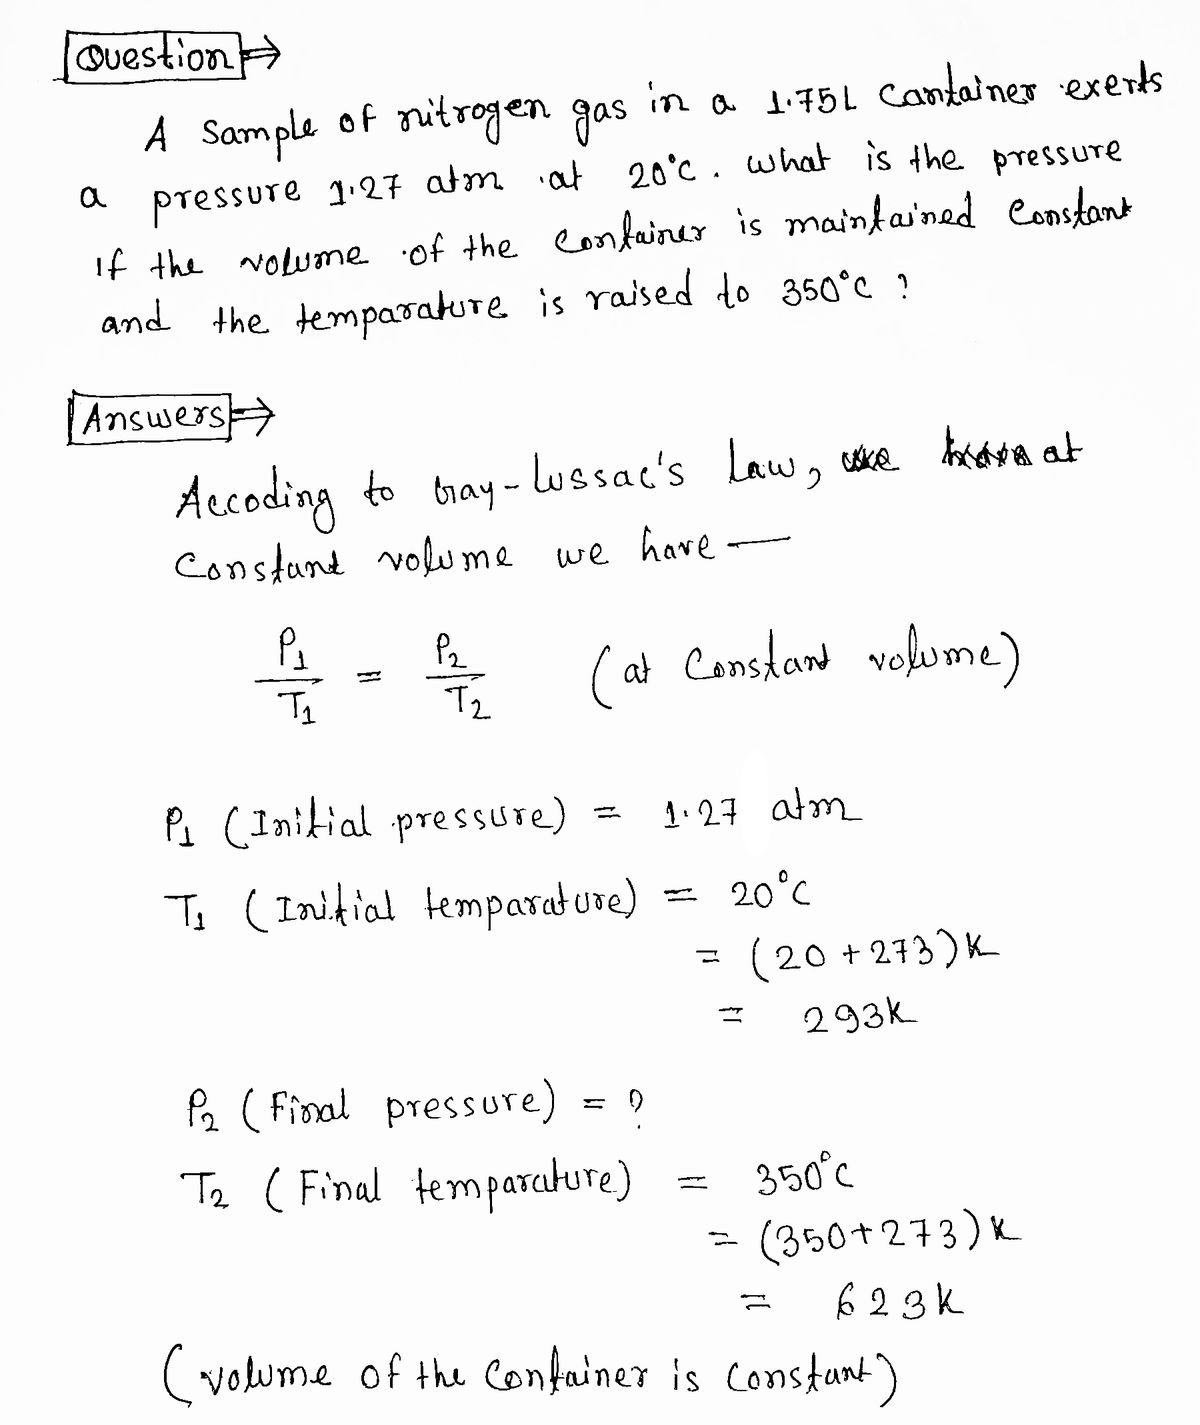 Question ⇒
A sample of nitrogen gas in a 1.75L Container exerts
a pressure 1.27 atm at 20°C. what is the pressure
if the volume of the container is maintained constant
and the temparature is raised to 350°C ?
Answers ⇒
Accoding to Gay-Lussac's Law, at
Constant volume we have —
P1/T1 = P2/T2 (at Constant volume)
P1 (Initial pressure) = 1.27 atm
T1 (Initial temparature) = 20°C
= (20 + 273)K
= 293K
P2 (Final pressure) = ?
T2 (Final temparature) = 350°C
= (350+273)K
= 623K
(volume of the Container is constant)